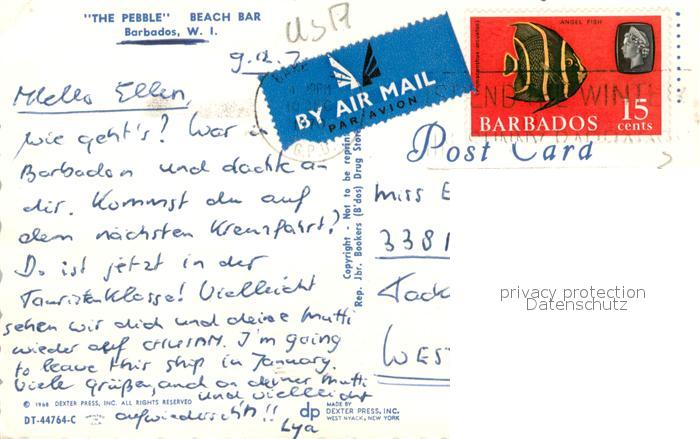 "THE PEBBLE" BEACH BAR
Barbados, W. I.
USA
9.12.
Hello Ellen,
wie geht's? War in
Barbados und dachte an
dir. Kommst du auf
dem nächsten Kreuzfahrt?
Du ist jetzt in der
Touristenklasse! Vielleicht
sehen wir dich und deine Mutti
wieder auf I'm going
to leave this ship in January.
Viele Grüße, and an deiner Mutti
und vielleicht
aufwiederseh'n!!
Lya
© 1968 DEXTER PRESS, INC. ALL RIGHTS RESERVED
DT-44764-C
dp MADE BY
DEXTER PRESS, INC.
WEST NYACK, NEW YORK
Copyright - Not to be reprin
Rep. Jhr. Bookers (B'dos) Drug Stor
BY AIR MAIL
PAR AVION
ANGEL FISH
15
cents
BARBADOS
WINTER
G.P.O.
Post Card
Miss E
3381
WES
privacy protection
Datenschutz